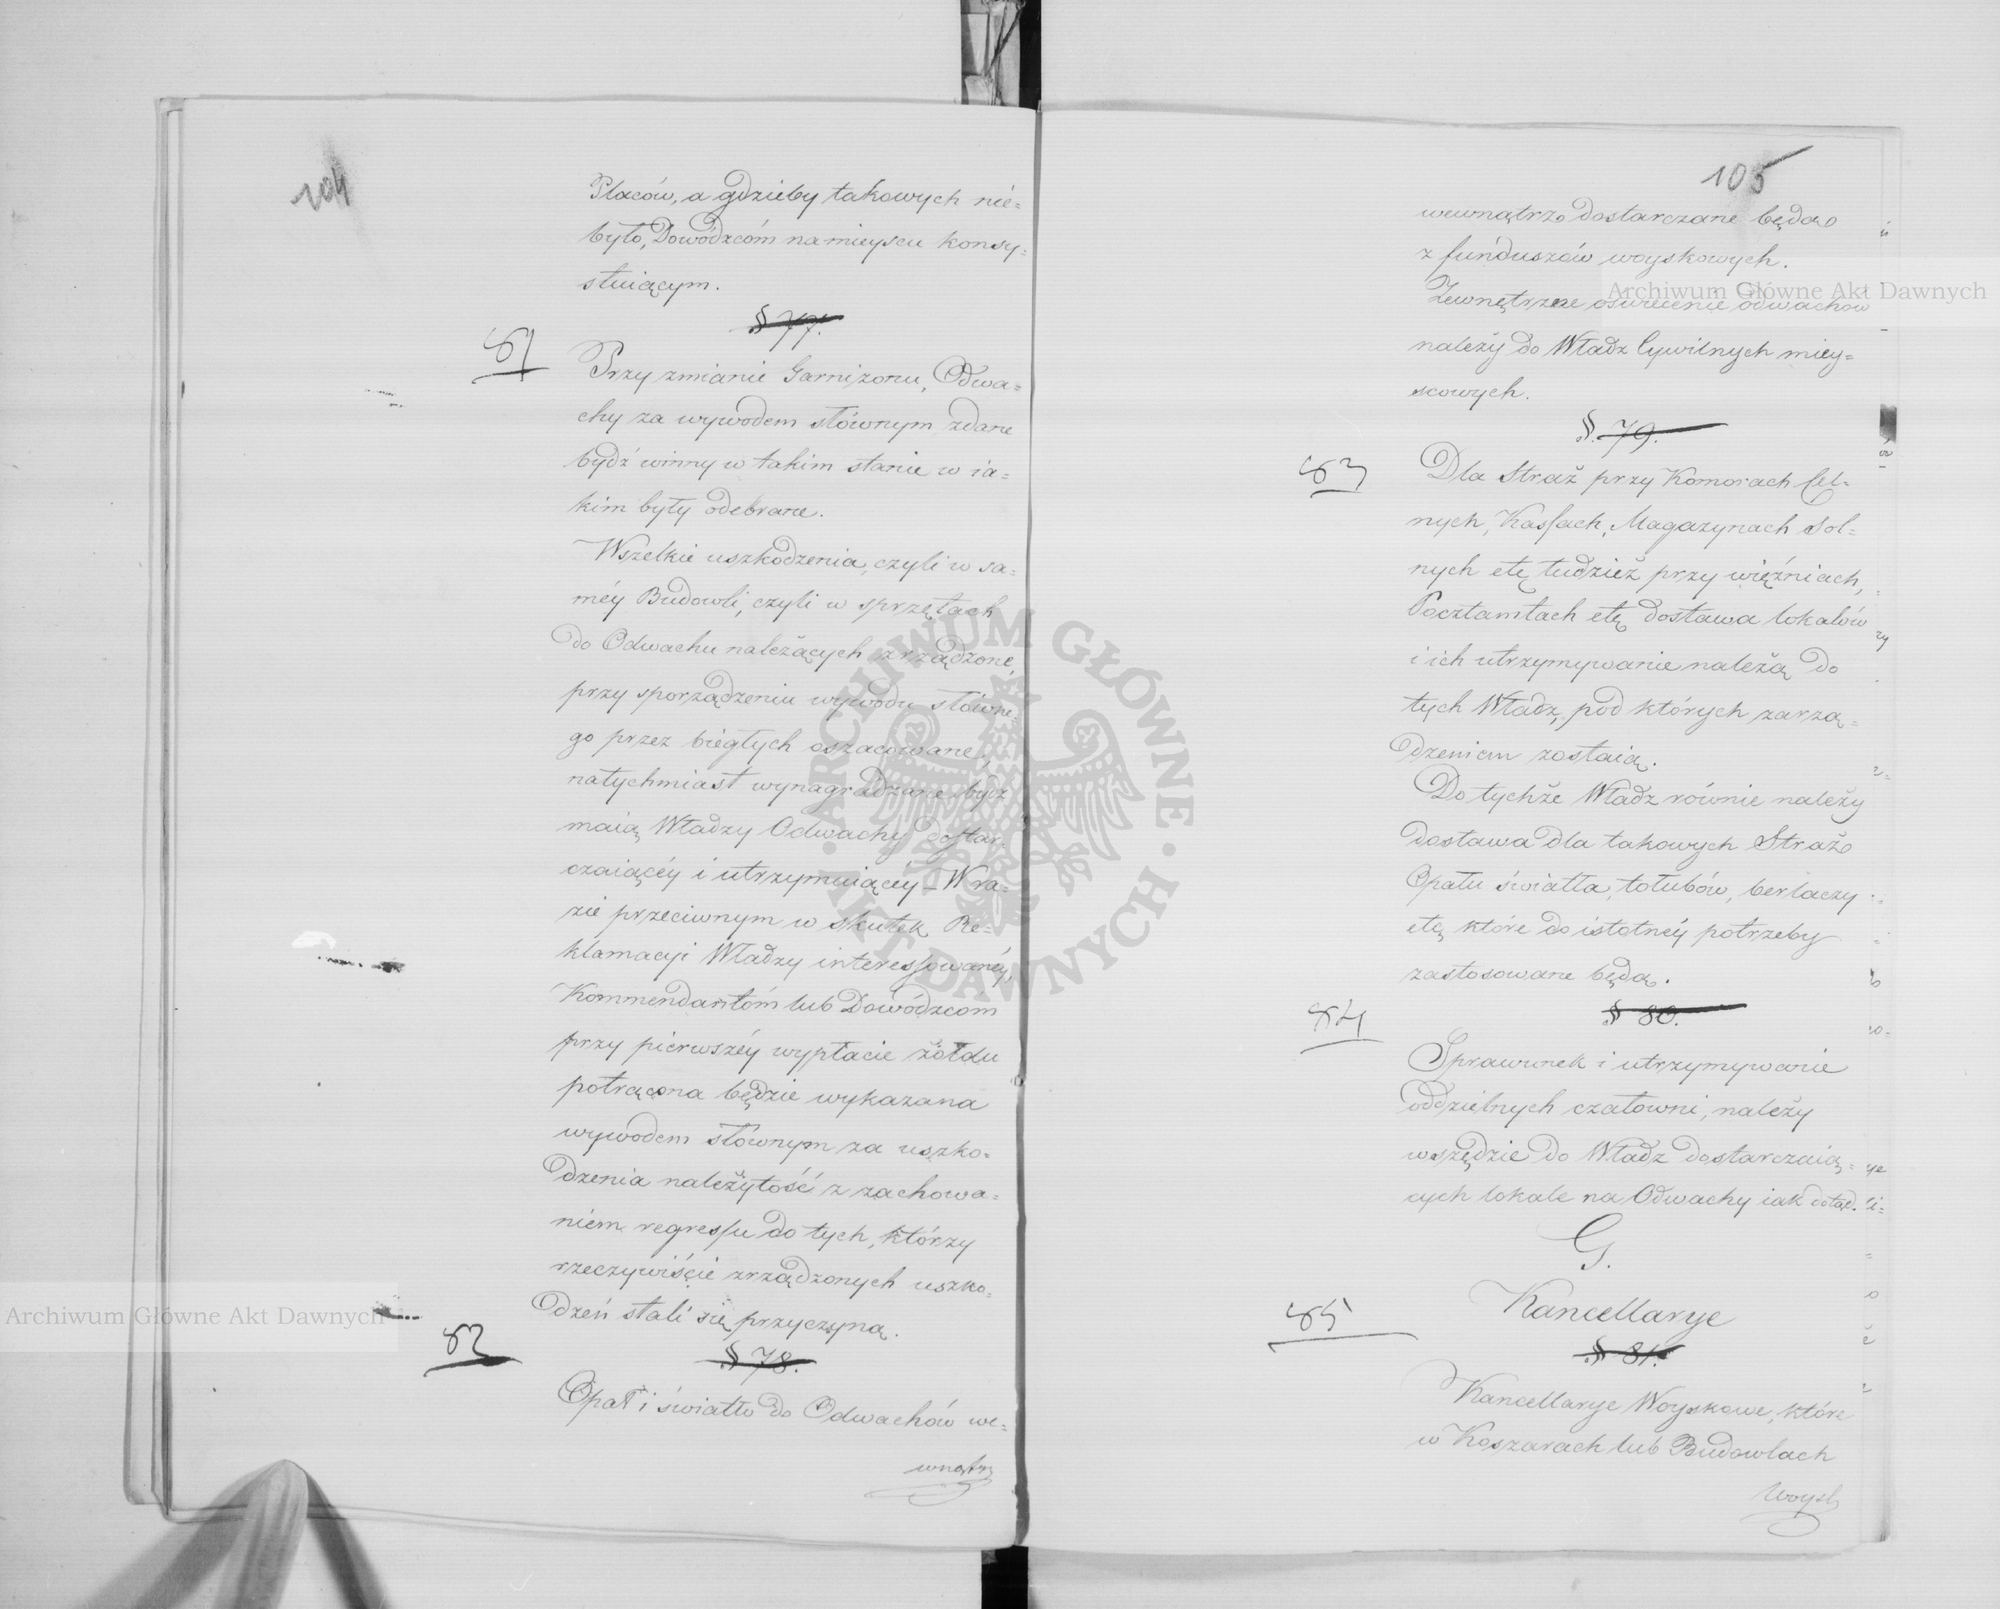 104
Placów, a gdzieby takowych nié=
było, Dowódzcóm na mieyscu konsy=
stuiącym.
§ 77.
81
Przy zmianie Garnizonu, Odwa=
chy za wywodem słównym zdane
bydź winny w takim stanie w ia=
kim były odebrane.
Wszelkie uszkodzenia, czyli w sa=
méy Budowli, czyli w sprzętach
do Odwachu należących zrządzone,
przy sporządzeniu wywodu słówne=
go przez biegłych oszacowane,
natychmiast wynagradzane bydź
maią Władzy Odwachy dostar=
czaiącéy i utrzymuiącéy – W ra=
zie przeciwnym w skutek Re=
klamacyi Władzy interessowanéy,
Kommendantóm lub Dowódzcom
przy pierwszéy wypłacie żołdu
potrącona będzie wykazana
wywodem słównym za uszko=
dzenia należytość z zachowa=
niem regressu do tych, którzy
rzeczywiście zrządzonych uszko=
dzeń stali się przyczyną.
82
§ 78.
Opał i światło do Odwachów we=
wnątrz
105
wewnątrz dostarczane będą
z funduszów woyskowych.
Zewnętrzne oswiecenie odwachów
należy do Władz Cywilnych miey=
scowych.
§. 79.
83
Dla Straż przy Komorach Cel=
nych, Kassach, Magazynach Sol=
nych etc tudzież przy więźniach,
Pocztamtach etc dostawa lokalów
i ich utrzymywanie należą do
tych Władz, pod których zarzą=
dzeniem zostaią.
Do tychże Władz równie należy
dostawa dla takowych Straż
Opału światła, tołubów, berlaczy
etc które do istotnéy potrzeby
zastosowane będą.
§ 80.
84
Sprawunek i utrzymywanie
oddzielnych czatowni, należy
wszędzie do Władz dostarczaią=
cych lokale na Odwachy iak dotąd.
G.
Kancellarye
85
§ 81.
Kancellarye Woyskowe, które
w Koszarach lub Budowlach
Woysk
Archiwum Główne Akt Dawnych
Archiwum Główne Akt Dawnych
ARCHIWUM GŁÓWNE · AKT DAWNYCH ·